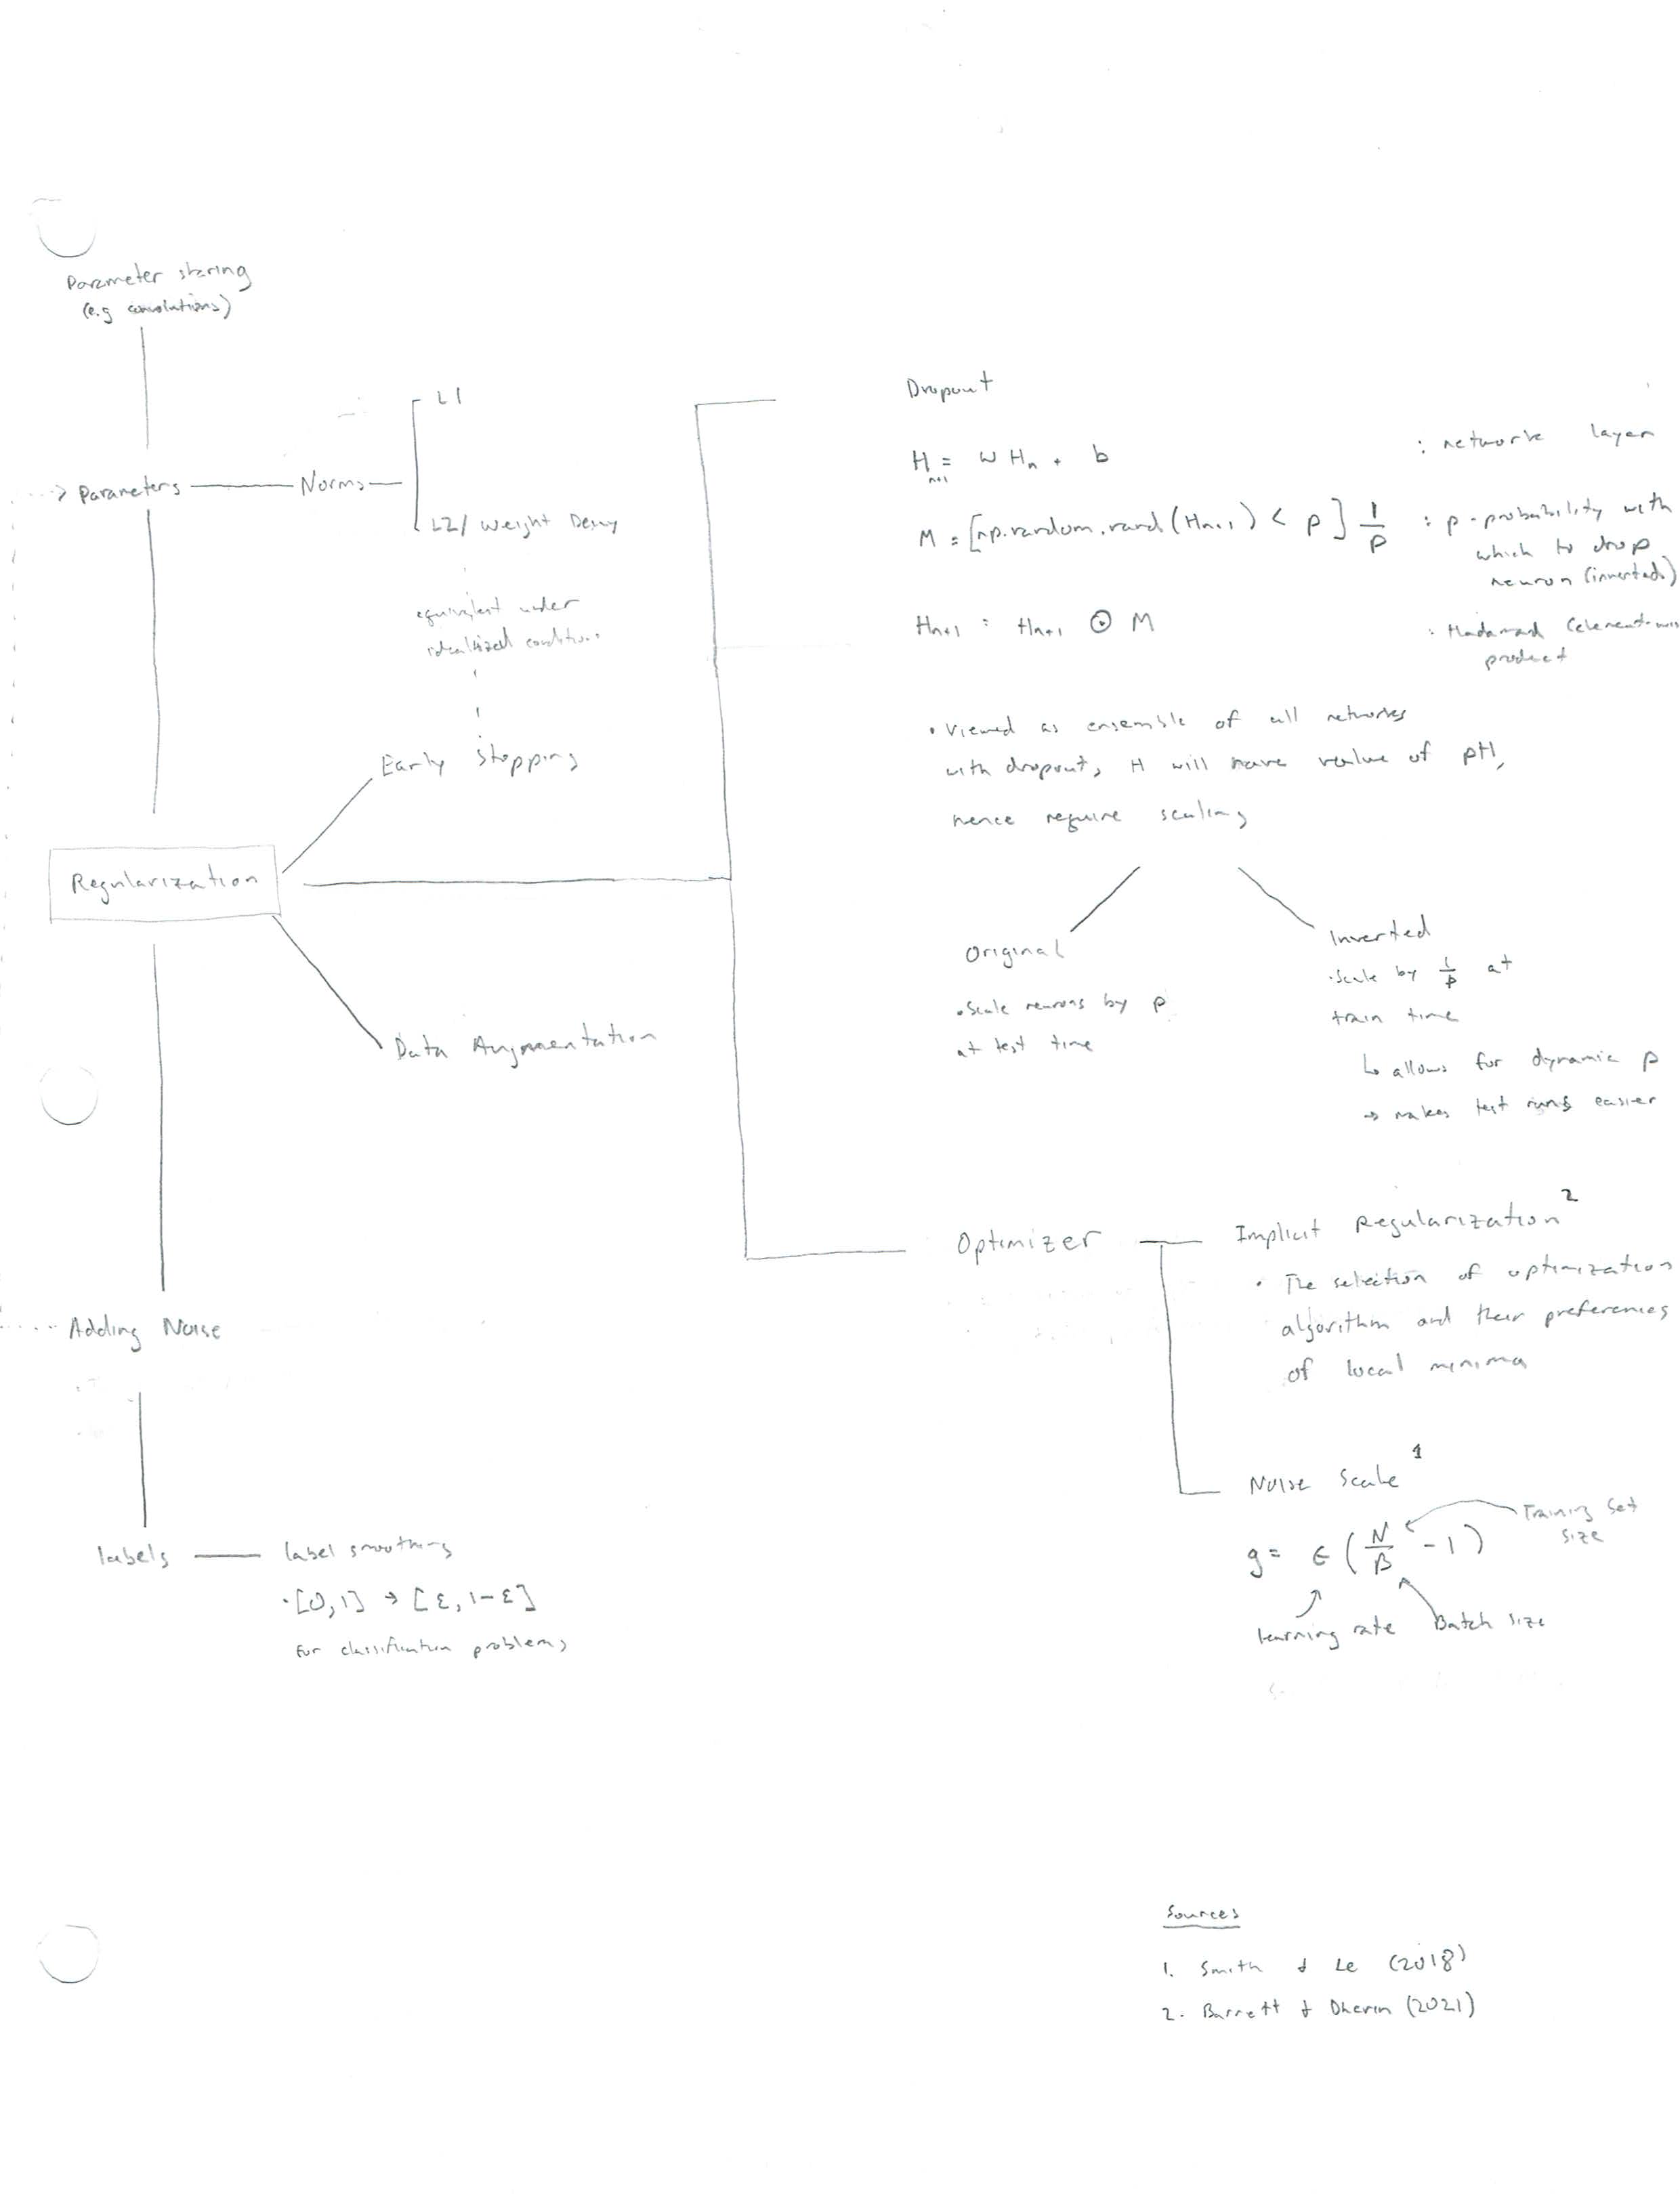 Parameter sharing
(e.g convolutions)
L1
Parameters
Norms
L2/ Weight Decay
equivalent under
idealized conditions
Early Stopping
Regularization
Data Augmentation
Adding Noise
labels
label smoothing
·[0,1] → [ε, 1-ε]
For classification problems
Dropout
H n+1 = W Hn + b
: network layer
M = [np.random.rand(Hn+1) < p] 1/p
: p - probability with
which to drop
neuron (inverted)
Hn+1 = Hn+1 ⊙ M
: Hadamard (element-wis
product
• Viewed as ensemble of all networks
with dropout, H will have value of pH,
hence require scaling
Original
• Scale neurons by p
at test time
Inverted
·Scale by 1/p at
train time
↳ allows for dynamic p
→ makes test runs easier
Optimizer
Implicit Regularization 2
• The selection of optimization
algorithm and their preferences
of local minima
Noise Scale 1
g = ϵ (N/B - 1)
Training Set
Size
learning rate
Batch size
Sources
1. Smith & Le (2018)
2. Barrett & Dherin (2021)